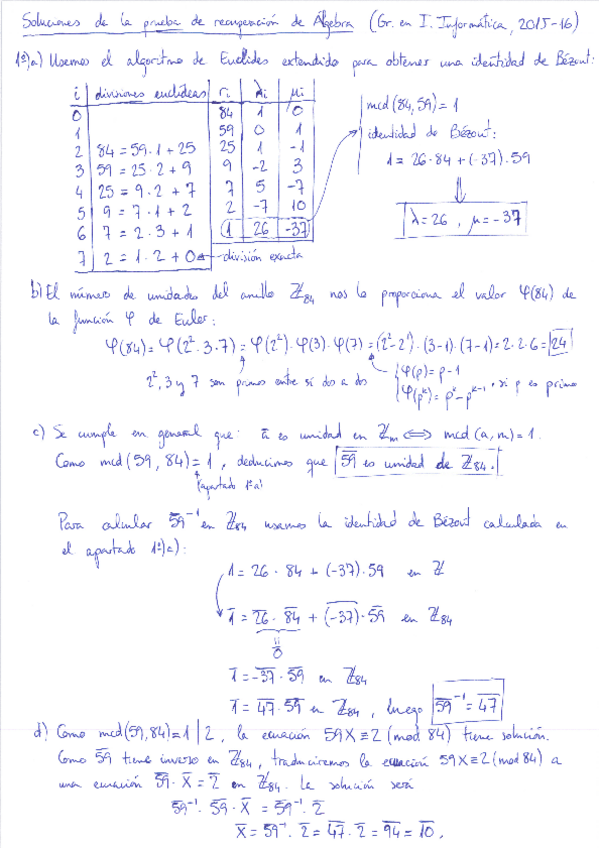 Soluciones de la prueba de recuperación de Álgebra (Gr. en I. Informática, 2015-16)
1º)a) Usemos el algoritmo de Euclides extendido para obtener una identidad de Bézout:
i | divisiones euclídeas | ri | λi | μi
0 | | 84 | 1 | 0
1 | | 59 | 0 | 1
2 | 84 = 59·1 + 25 | 25 | 1 | -1
3 | 59 = 25·2 + 9 | 9 | -2 | 3
4 | 25 = 9·2 + 7 | 7 | 5 | -7
5 | 9 = 7·1 + 2 | 2 | -7 | 10
6 | 7 = 2·3 + 1 | 1 | 26 | -37
7 | 2 = 1·2 + 0 ← división exacta
mcd(84,59) = 1
identidad de Bézout:
1 = 26·84 + (-37)·59
⇓
λ = 26 , μ = -37
b) El número de unidades del anillo ℤ84 nos lo proporciona el valor φ(84) de
la función φ de Euler:
φ(84) = φ(2²·3·7) = φ(2²)·φ(3)·φ(7) = (2²-2¹)·(3-1)·(7-1) = 2·2·6 = 24
2², 3 y 7 son primos entre sí dos a dos
{ φ(p) = p-1
φ(p^k) = p^k - p^(k-1) , si p es primo
c) Se cumple en general que: ā es unidad en ℤm ⟺ mcd(a,m) = 1.
Como mcd(59,84) = 1, deducimos que 5̅9̅ es unidad de ℤ84.
(apartado 1º a)
Para calcular 5̅9̅⁻¹ en ℤ84 usamos la identidad de Bézout calculada en
el apartado 1º)a):
1 = 26·84 + (-37)·59 en ℤ
1̅ = 2̅6̅·8̅4̅ + (̅-̅3̅7̅)̅·5̅9̅ en ℤ84
=
0̅
1̅ = -̅3̅7̅·5̅9̅ en ℤ84
1̅ = 4̅7̅·5̅9̅ en ℤ84, luego 5̅9̅⁻¹ = 4̅7̅
d) Como mcd(59,84) = 1 | 2, la ecuación 59X ≡ 2 (mod 84) tiene solución.
Como 5̅9̅ tiene inverso en ℤ84, traduciremos la ecuación 59X ≡ 2 (mod 84) a
una ecuación 5̅9̅·X̅ = 2̅ en ℤ84. La solución será
5̅9̅⁻¹·5̅9̅·X̅ = 5̅9̅⁻¹·2̅
X̅ = 5̅9̅⁻¹·2̅ = 4̅7̅·2̅ = 9̅4̅ = 1̅0̅.